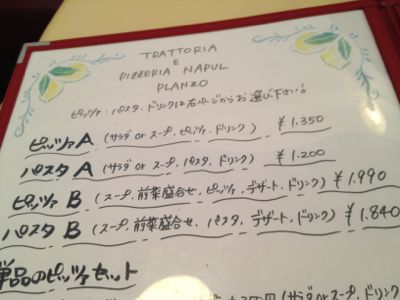 TRATTORIA
E
PIZZERIA NAPUL
PLANZO
ピッツァ・パスタ・ドリンクは右ページからお選び下さい。
ピッツァA (サラダ or スープ、ピッツァ、ドリンク) ¥1.350
パスタA (サラダ or スープ、パスタ、ドリンク) ¥1.200
ピッツァB (スープ、前菜盛合せ、ピッツァ、デザート、ドリンク) ¥1.990
パスタB (スープ、前菜盛合せ、パスタ、デザート、ドリンク) ¥1.840
単品のピッツァセット
(サラダ or スープ、ドリンク)